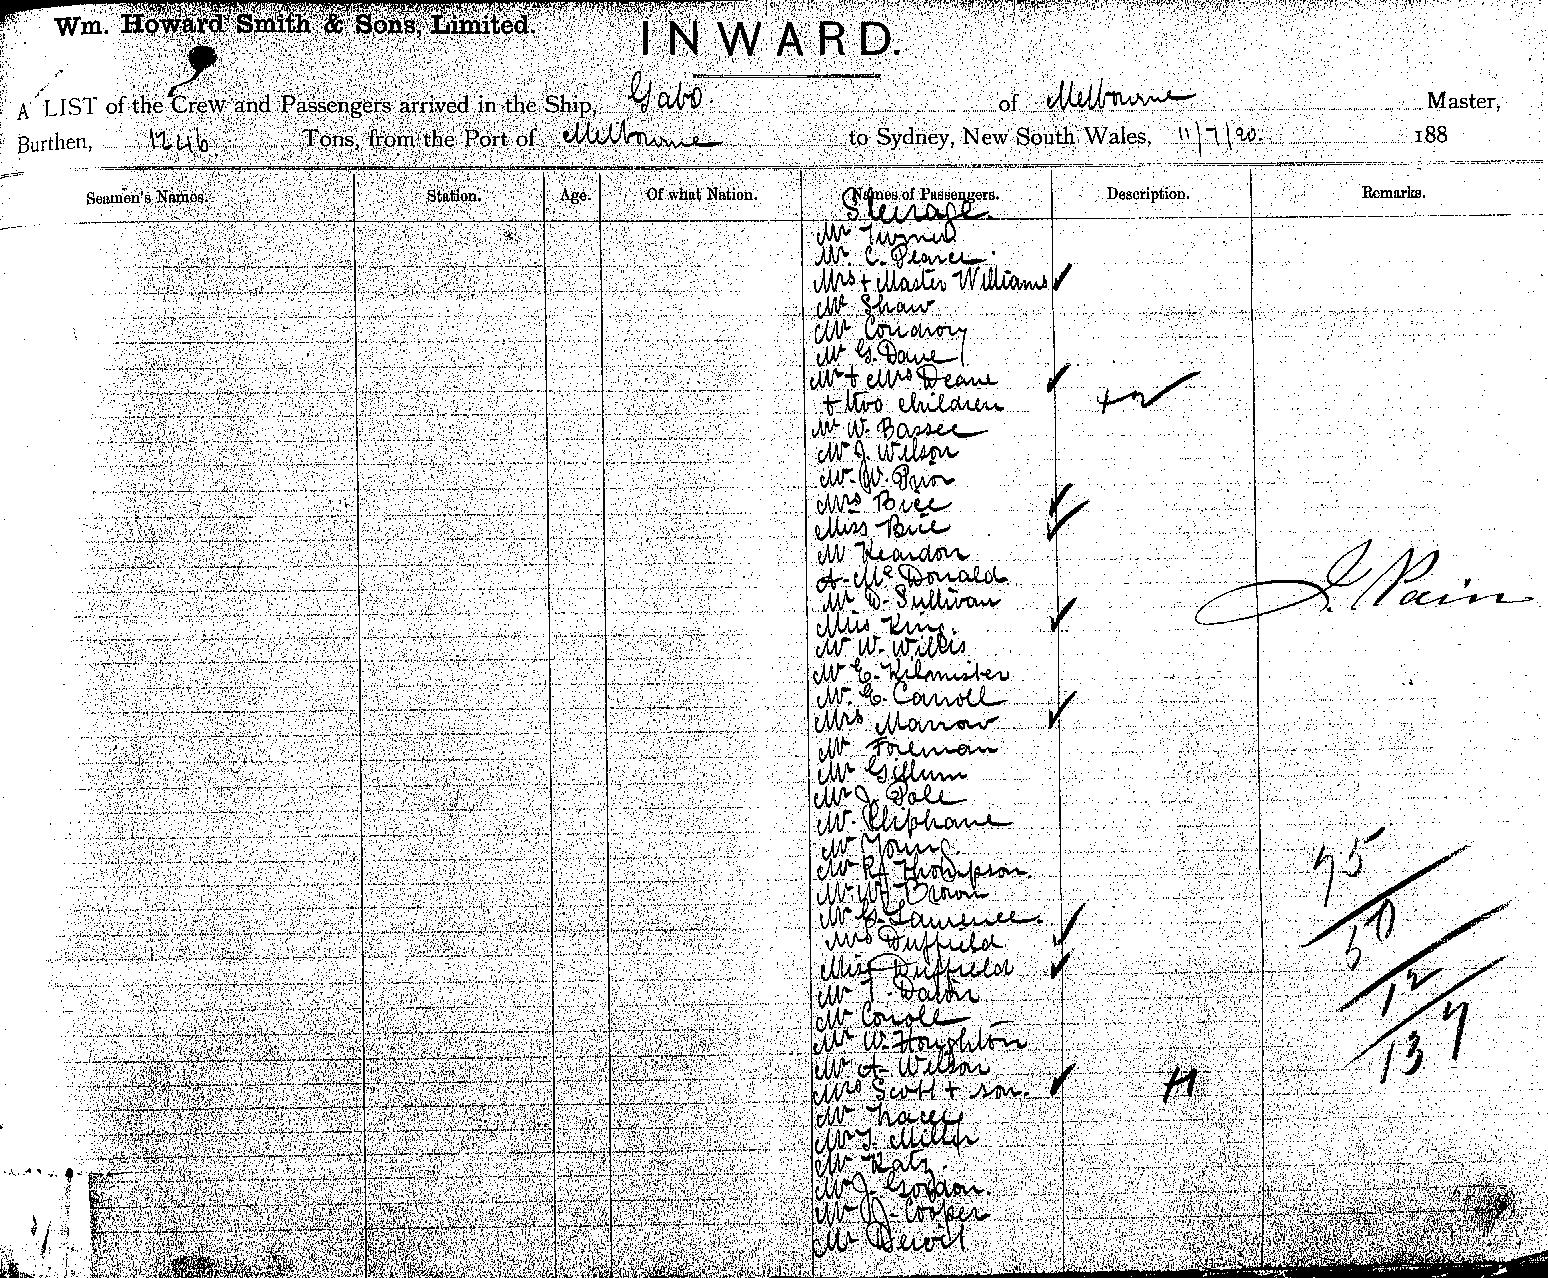 Wm. Howard Smith & Sons, Limited.
INWARD.
A LIST of the Crew and Passengers arrived in the Ship, Gabo. of Melbourne Master,
Burthen, 1246 Tons, from the Port of Melbourne to Sydney, New South Wales, 11/7/90. 188
Seamen's Names. Station. Age. Of what Nation. Names of Passengers. Description. Remarks.
Steerage.
Mr Turner
Mr. C. Pearce
Mrs + Master Williams ✓
Mr Shaw
Mr
Mr G. Dane
Mr + Mrs Deane ✓
+ two children +2
Mr W. Bassee
Mr J. Wilson
Mr. W. Prior
Mrs Brice ✓
Miss Brice ✓
Mr Reardon
A. McDonald
Mr D. Sullivan
Miss King. ✓
Mr W. Willis
Mr E. Kilmister
Mr. E. Carroll
Mrs Marrow ✓
Mr Foreman
Mr Gillum
Mr J. Pole
Mr. Eliphane
Mr Young.
Mr R. Thompson.
Mr W. Brown
Mr G. Lawrence.
Mrs Duffield ✓
Miss Duffield ✓
Mr T. Dalton
Mr Conole
Mr W. Houghton
Mr A. Wilson
Mrs Scott + son. ✓ +1
Mr Tracey
Mr T. Miller
Mr Katz.
Mr J. Gordon.
Mr J. Cooper
Mr
J. Pain
75
50
12
137